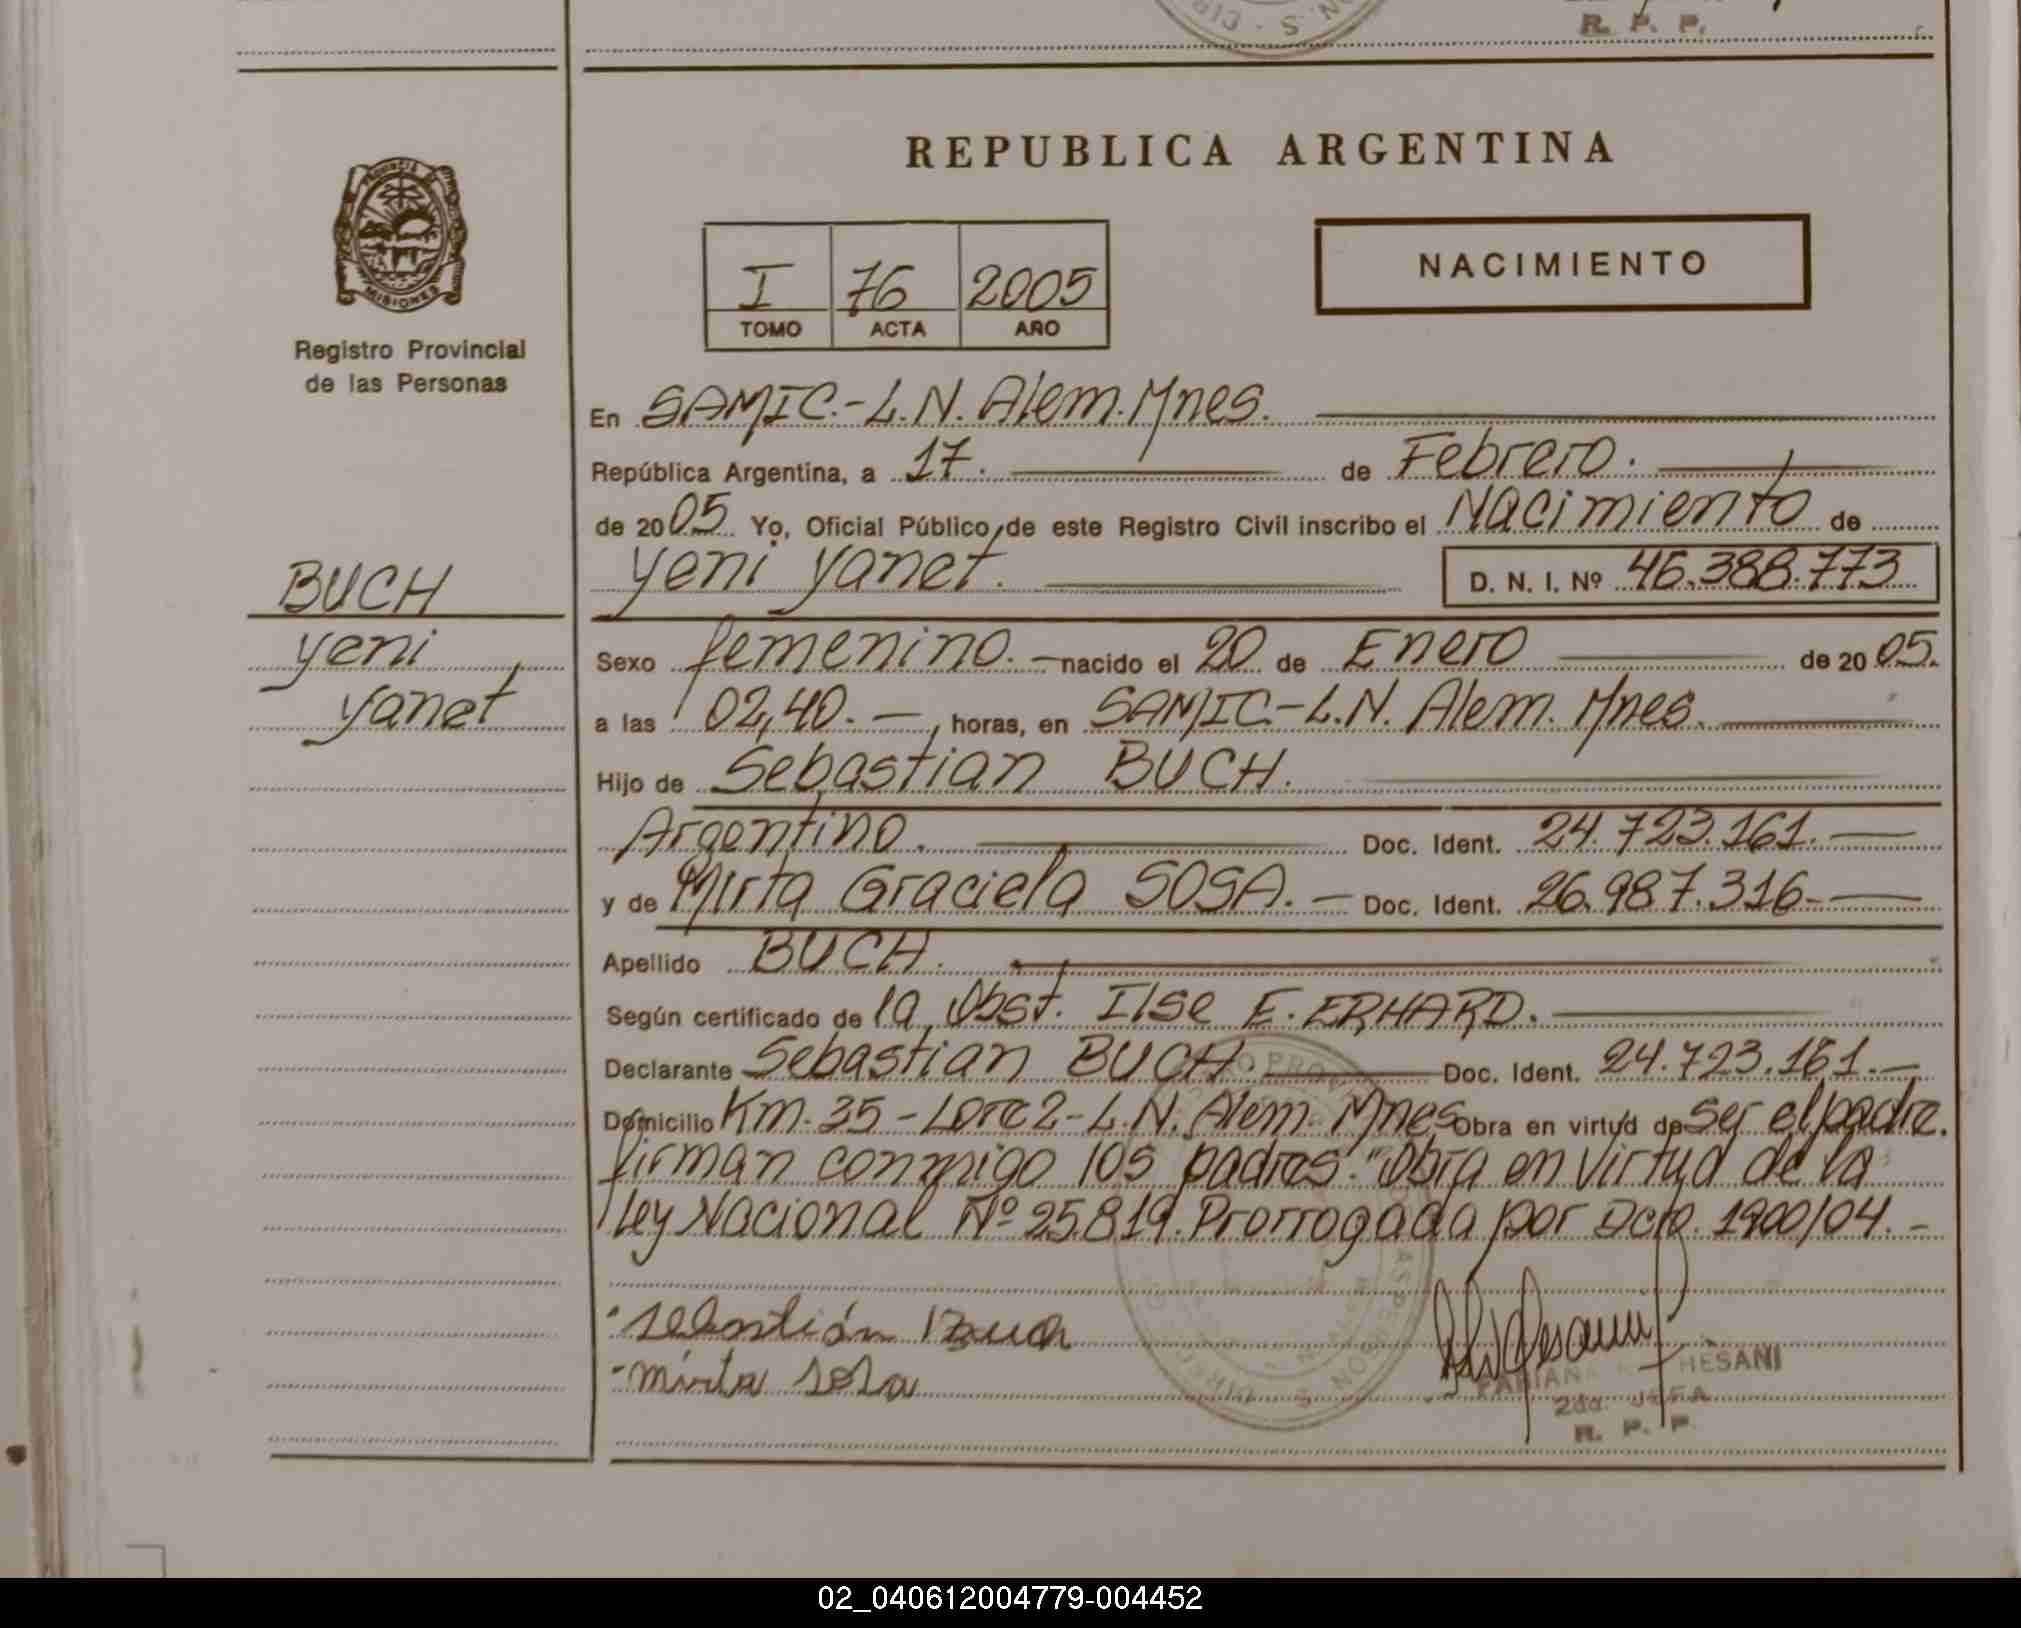 R. P. P.
REPUBLICA ARGENTINA
PROVINCIA DE
MISIONES
Registro Provincial
de las Personas
I 76 2005
TOMO ACTA AÑO
NACIMIENTO
En SAMIC.-L.N. Alem. Mnes.
República Argentina, a 17. de Febrero.
de 2005 Yo, Oficial Público de este Registro Civil inscribo el Nacimiento de
Yeni Yanet. D. N. I. Nº 46.388.773
BUCH
Yeni
Yanet
Sexo femenino.- nacido el 20 de Enero de 2005.
a las 02,40.- horas, en SAMIC.-L.N. Alem. Mnes.
Hijo de Sebastian BUCH.
Argentino. Doc. Ident. 24.723.161.-
y de Mirta Graciela SOSA.- Doc. Ident. 26.987.316-
Apellido BUCH.
Según certificado de la Obst. Ilse E. ERHARD.
Declarante Sebastian BUCH. Doc. Ident. 24.723.161.-
Domicilio Km. 35-Lote 2-L.N. Alem. Mnes Obra en virtud de ser el padre.
firman conmigo los padres. "Obra en virtud de la
Ley Nacional Nº 25.819. Prorrogada por Dcto. 1900/04.-
Sebastián Buch
mirta sosa
2da. JEFA
R. P. P.
02_040612004779-004452